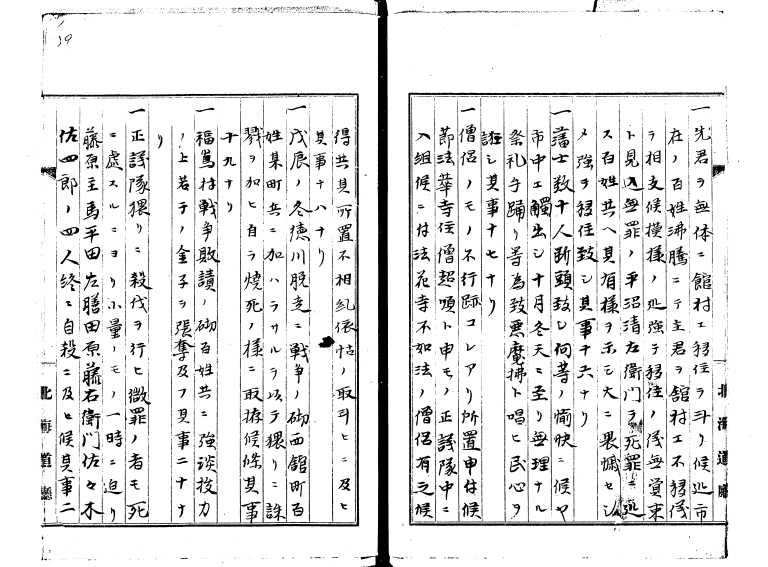 一先君ヲ無体ニ館村エ移住ヲ斗リ候処市
在ノ百姓沸騰ニテ主君ヲ館村エ不移儀
ヲ相支候模様ノ処強テ移住ノ儀無賞束
ト見込無罪ノ平沼清左衛門ヲ死罪ニ処
ス百姓共ヘ其有様ヲ示シ大ニ畏懾セシ
メ強ヲ移住致シ其事十六ナリ
一藩士数十人断頭致シ何等ノ愉快ニ候ヤ
市中エ觸出シ十月冬天ニ至リ無理ナル
祭礼手踊リ等為致悪魔拂ト唱ヒ民心ヲ
誑シ其事十七ナリ
一僧侶ノモノ不行跡コレアリ所置申付候
節法華寺住僧超頌ト申モノ正議隊中ニ
入組候ニ付法花寺不如法ノ僧侶有之候
得共其所置不相糺依怙ノ取斗ヒニ及ヒ
其事十八ナリ
一戊辰ノ冬徳川脱走ニ戦争ノ砌西館町百
姓某町兵ニ加ハラサルヲ以テ猥リニ誅
戮ヲ加ヒ自ラ焼死ノ様ニ取拵候條其事
十九ナリ
一福嶌村戦争敗讀ノ砌百姓共ニ強談按力
ノ上若干ノ金子ヲ張奪及フ其事二十ナ
リ
一正議隊猥リニ殺伐ヲ行ヒ微罪ノ者モ死
ニ處スルニヨリ小量ノモノ一時ニ迫リ
藤原主馬平田左膳田原藤右衛門佐々木
佐四郎ノ四人終ニ自殺ニ及ヒ候其事二
北海道廳
北海道廳
39